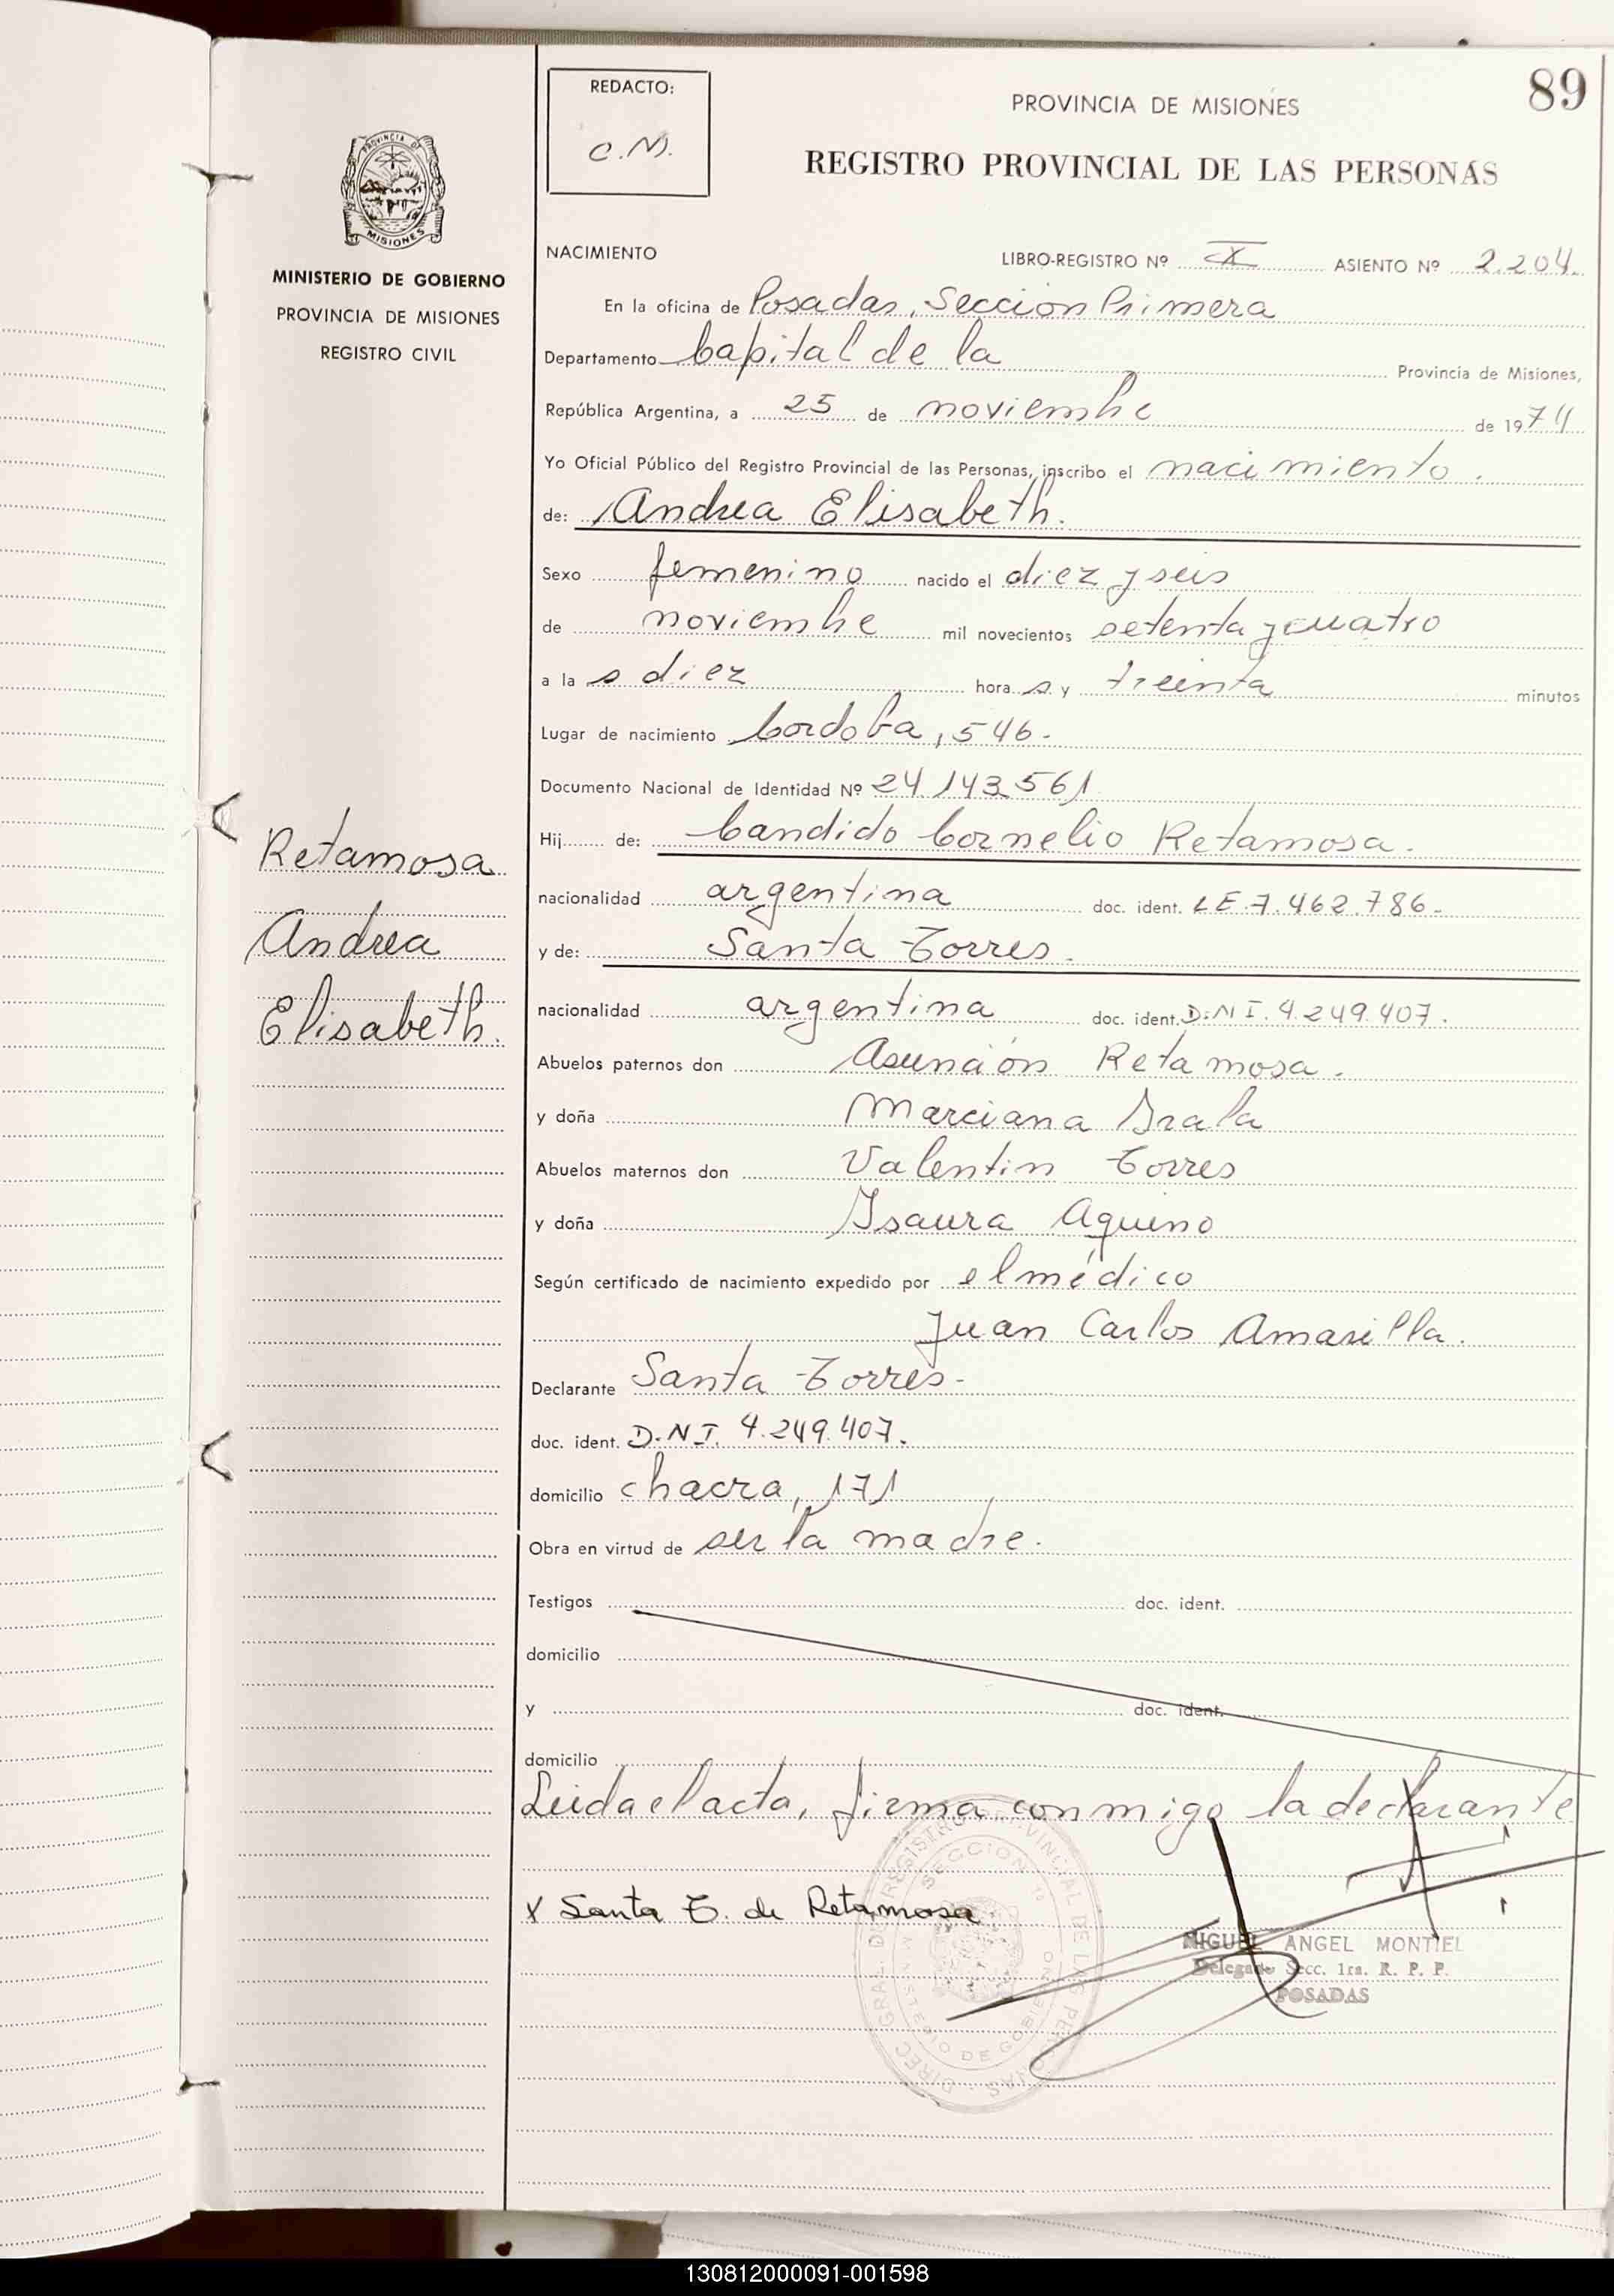 89
REDACTO:
C.N.
PROVINCIA DE MISIONES
REGISTRO PROVINCIAL DE LAS PERSONAS
PROVINCIA DE
MISIONES
MINISTERIO DE GOBIERNO
PROVINCIA DE MISIONES
REGISTRO CIVIL
NACIMIENTO LIBRO-REGISTRO Nº X ASIENTO Nº 2.204.
En la oficina de Posadas, Sección Primera
Departamento Capital de la Provincia de Misiones,
República Argentina, a 25 de noviembre de 1974
Yo Oficial Público del Registro Provincial de las Personas, inscribo el nacimiento.
de: Andrea Elisabeth.
Sexo femenino nacido el diez y seis
de noviembre mil novecientos setenta y cuatro
a la s diez hora s y treinta minutos
Lugar de nacimiento Cordoba, 546.
Documento Nacional de Identidad Nº 24.143.561
Hij de: Candido Cornelio Retamosa.
nacionalidad argentina doc. ident. LE.7.462.786.
y de: Santa Torres.
nacionalidad argentina doc. ident. D.N.I. 4.249.407.
Abuelos paternos don Asunción Retamosa.
y doña Marciana Irala
Abuelos maternos don Valentin Torres
y doña Isaura Aquino
Según certificado de nacimiento expedido por el médico
Juan Carlos Amarilla.
Declarante Santa Torres.
doc. ident. D.N.I. 4.249.407.
domicilio chacra, 171
Obra en virtud de ser la madre.
Testigos doc. ident.
domicilio
y doc. ident.
domicilio
Leida el acta, firma conmigo la declarante
x Santa T. de Retamosa
MIGUEL ANGEL MONTIEL
Delegado Secc. 1ra. R. P. P.
POSADAS
Retamosa
Andrea
Elisabeth.
130812000091-001598